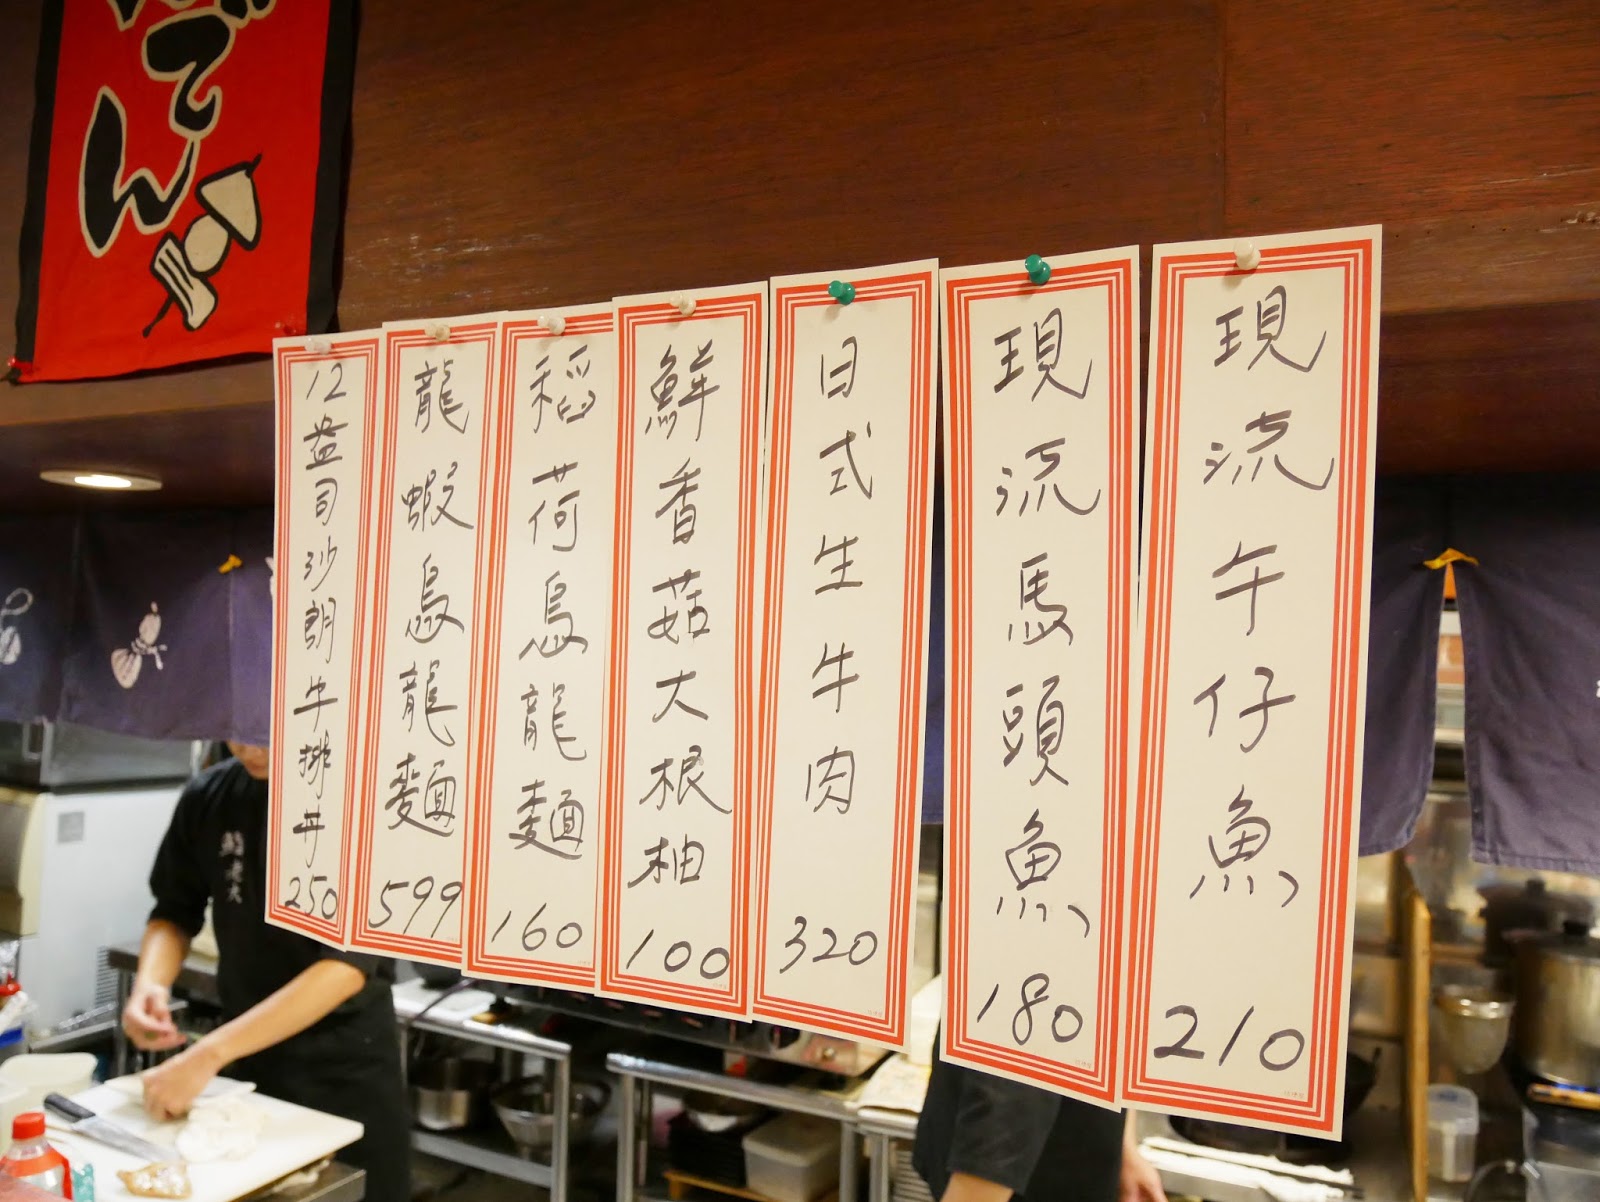 でん
現流午仔魚 210
現流馬頭魚 180
日式生牛肉 320
鮮香菇大根柚 100
稻荷烏龍麵 160
龍蝦烏龍麵 599
12盎司沙朗牛排丼 250